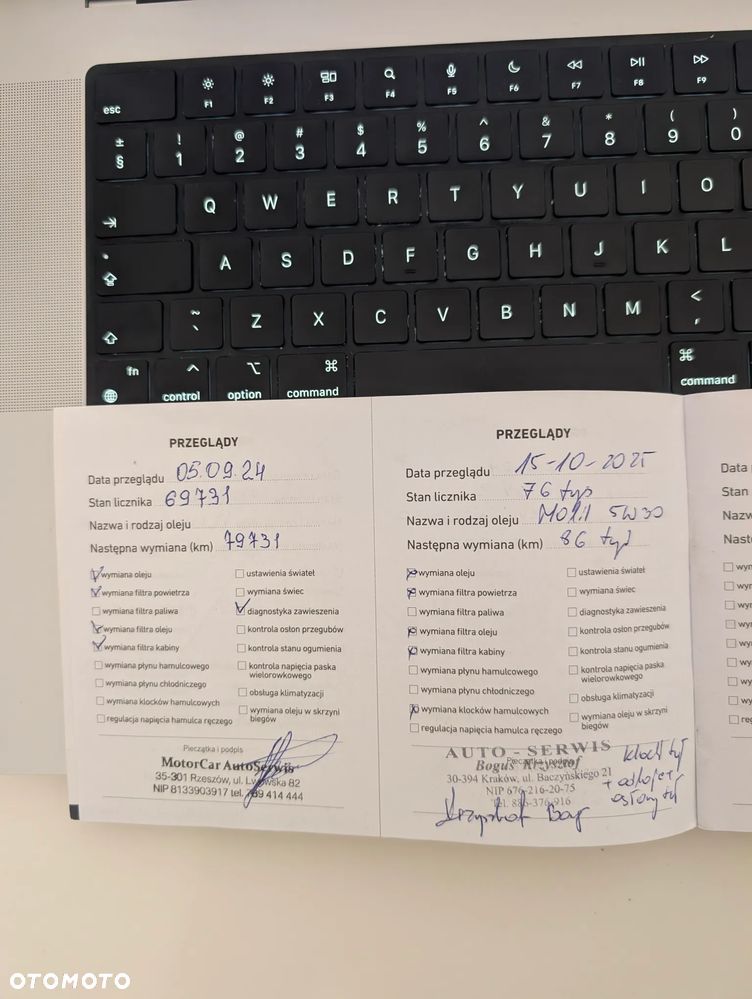 esc F1 F2 F3 F4 F5 F6 F7 F8 F9
± § ! 1 @ 2 # 3 $ 4 % 5 ^ 6 & 7 * 8 ( 9 ) 0
Q W E R T Y U I O
A S D F G H J K L
~ ` Z X C V B N M < ,
fn control option ⌘ command ⌘ command
PRZEGLĄDY
Data przeglądu 05.09.24
Stan licznika 69731
Nazwa i rodzaj oleju
Następna wymiana (km) 79731
wymiana oleju
wymiana filtra powietrza
wymiana filtra paliwa
wymiana filtra oleju
wymiana filtra kabiny
wymiana płynu hamulcowego
wymiana płynu chłodniczego
wymiana klocków hamulcowych
regulacja napięcia hamulca ręczego
ustawienia świateł
wymiana świec
diagnostyka zawieszenia
kontrola osłon przegubów
kontrola stanu ogumienia
kontrola napięcia paska
wielorowkowego
obsługa klimatyzacji
wymiana oleju w skrzyni
biegów
Pieczątka i podpis
MotorCar AutoSerwis
35-301 Rzeszów, ul. Lwowska 82
NIP 8133903917 tel. 789 414 444
PRZEGLĄDY
Data przeglądu 15-10-2025
Stan licznika 76 tys
Nazwa i rodzaj oleju Mobil 5W30
Następna wymiana (km) 86 tyś
wymiana oleju
wymiana filtra powietrza
wymiana filtra paliwa
wymiana filtra oleju
wymiana filtra kabiny
wymiana płynu hamulcowego
wymiana płynu chłodniczego
wymiana klocków hamulcowych
regulacja napięcia hamulca ręczego
ustawienia świateł
wymiana świec
diagnostyka zawieszenia
kontrola osłon przegubów
kontrola stanu ogumienia
kontrola napięcia paska
wielorowkowego
obsługa klimatyzacji
wymiana oleju w skrzyni
biegów
Pieczątka i podpis
AUTO - SERWIS
Boguś Krzysztof
30-394 Kraków, ul. Baczyńskiego 21
NIP 676-216-20-75
Tel. 886-376-916
Klocki tył
osłony tył
Data p
Stan
Nazw
Nast
OTOMOTO